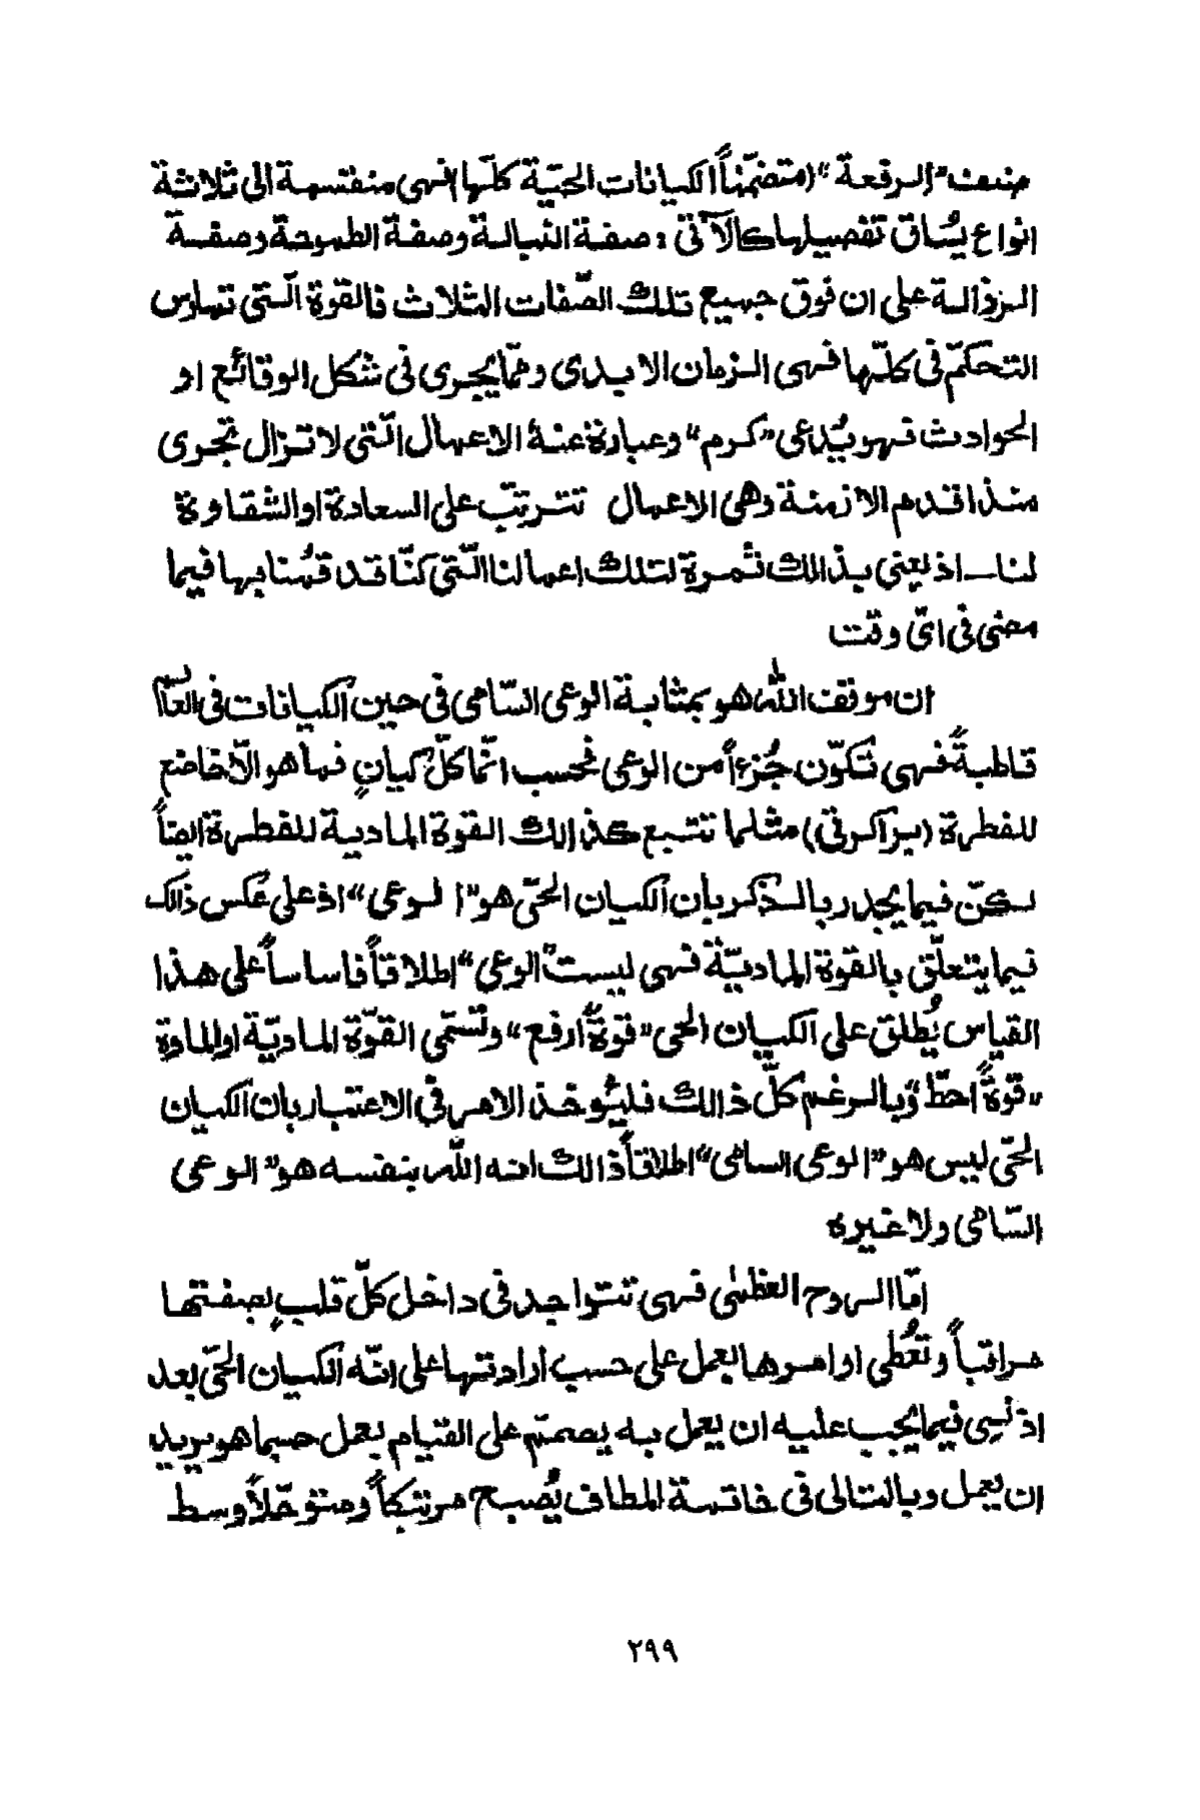 صنف "الرفعة" (متضمّناً الكيانات الحيّة كلّها) فهى منقسمة الى ثلاثة
انواع يُساق تفصيلها كالآتى : صفة النبالة وصفة الطموحة وصفة
الرذالة على ان فوق جميع تلك الصّفات الثلاث فالقوة الّتى تمارس
التحكّم فى كلّها فهى الزمان الابدى وممّا يجرى فى شكل الوقائع او
الحوادث فهو يُدعى "كرم" وعبارة عنه الاعمال الّتى لا تزال تجرى
منذ اقدم الازمنة وهى الاعمال تترتّب على السعادة او الشقاوة
لنا ــ اذ يعنى بذالك ثمرة لتلك اعمالنا الّتى كنّا قد قُمنا بها فيما
مضى فى اىّ وقت
ان موقف اللّه هو بمثابة الوعى السّامى فى حين الكيانات فى العالم
قاطبةً فهى تُكوّن جُزءاً من الوعى فحسب انّما كلّ كيانٍ فما هو الّا خاضع
للفطرة (براكرتى) مثلما تتبع كذالك القوة المادية للفطرة ايضاً
لكنّ فيما يجدر بالذكر بان الكيان الحىّ هو "الوعى" اذ على عكس ذالك
فيما يتعلّق بالقوة الماديّة فهى ليست "الوعى" اطلاقاً فاساساً على هذا
القياس يُطلق على الكيان الحى "قوةٌ ارفع" وتُسمّى القوّة الماديّة او المادة
"قوةً احطّ" وبالرغم كلّ ذالك فليُؤخذ الامر فى الاعتبار بان الكيان
الحىّ ليس هو "الوعى السامى" اطلاقاً ذالك انه اللّه بنفسه هو "الوعى
السّامى ولا غيره
امّا الروح العظمٰى فهى تتواجد فى داخل كلّ قلبٍ بصفتها
مراقباً وتُعطى اوامرها بالعمل على حسب ارادتها على انّه الكيان الحىّ بعد
اذ نسى فيما يجب عليه ان يعمل به يصمّم على القيام بعمل حسبما هو يريد
ان يعمل وبالتالى فى خاتمة المطاف يُصبح مرتبكاً ومتوحّلاً وسط
٢٩٩